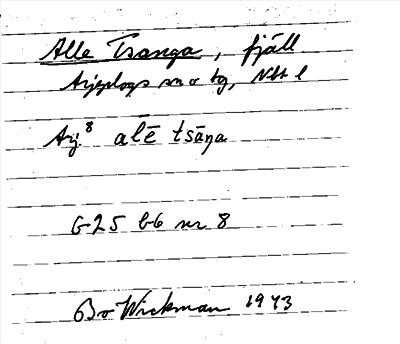 Alle Tsanga, fjäll
Arjeplogs sn o tg, Nbt l
Arj.⁸ alē tsāŋa
G25 b6 nr 8
Bo Wickman 1943